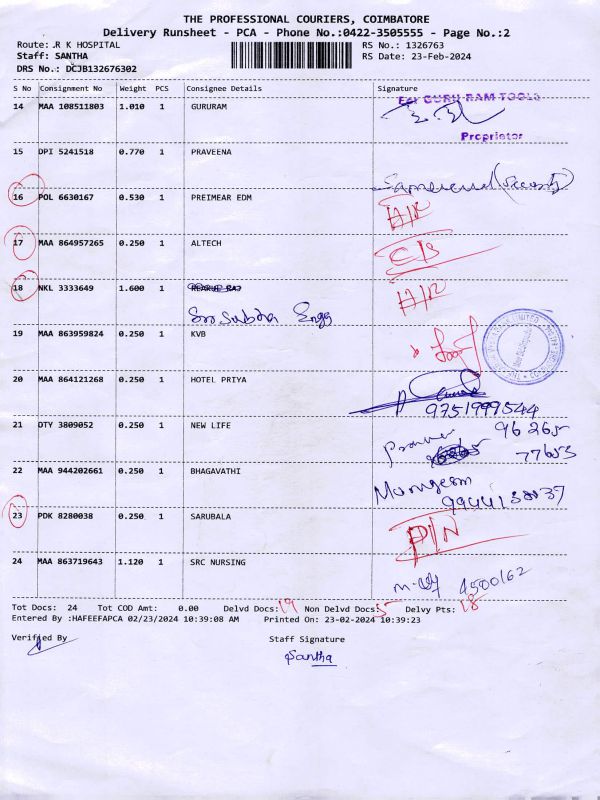 THE PROFESSIONAL COURIERS, COIMBATORE
Delivery Runsheet - PCA - Phone No.:0422-3505555 - Page No.:2
Route: .R K HOSPITAL RS No.: 1326763
Staff: SANTHA RS Date: 23-Feb-2024
DRS No.: DCJB132676302
S No Consignment No Weight PCS Consignee Details Signature
For GURU RAM TOOLS
14 MAA 108511803 1.010 1 GURURAM
Proprietor
15 DPI 5241518 0.770 1 PRAVEENA
16 POL 6630167 0.530 1 PREIMEAR EDM
17 MAA 864957265 0.250 1 ALTECH
18 NKL 3333649 1.600 1
Sri Subha Engg
19 MAA 863959824 0.250 1 KVB
20 MAA 864121268 0.250 1 HOTEL PRIYA
9751999544
21 OTY 3809052 0.250 1 NEW LIFE 96265
77653
22 MAA 944202661 0.250 1 BHAGAVATHI
23 PDK 8280038 0.250 1 SARUBALA
24 MAA 863719643 1.120 1 SRC NURSING
Tot Docs: 24 Tot COD Amt: 0.00 Delvd Docs: 19 Non Delvd Docs: 5 Delvy Pts: 18
Entered By :HAFEEFAPCA 02/23/2024 10:39:08 AM Printed On: 23-02-2024 10:39:23
Verified By Staff Signature
Santha